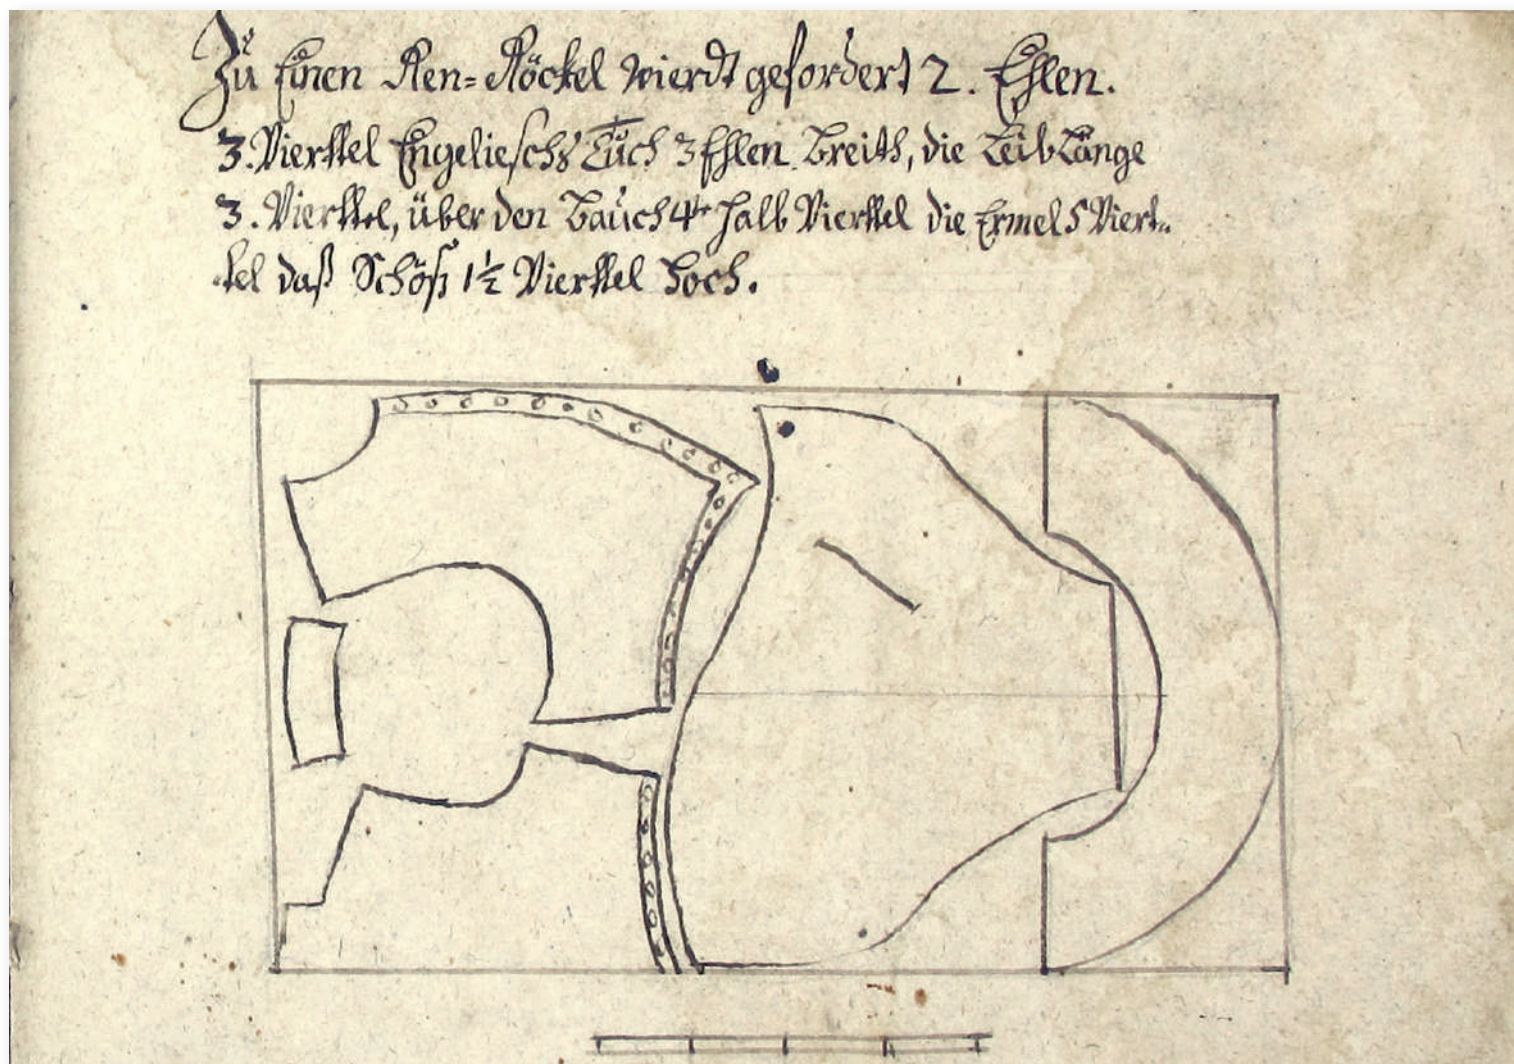 Zu Einen Ren=Röckel wierdt gefordert 2. Ehlen.
3. Vierttel Engelieschs Tuch 3 Ehlen Breith, die Leib Länge
3. Vierttel, über den Bauch 4te halb Vierttel die Ermel 5 Viert=
tel daß Schöß 1½ Vierttel hoch.